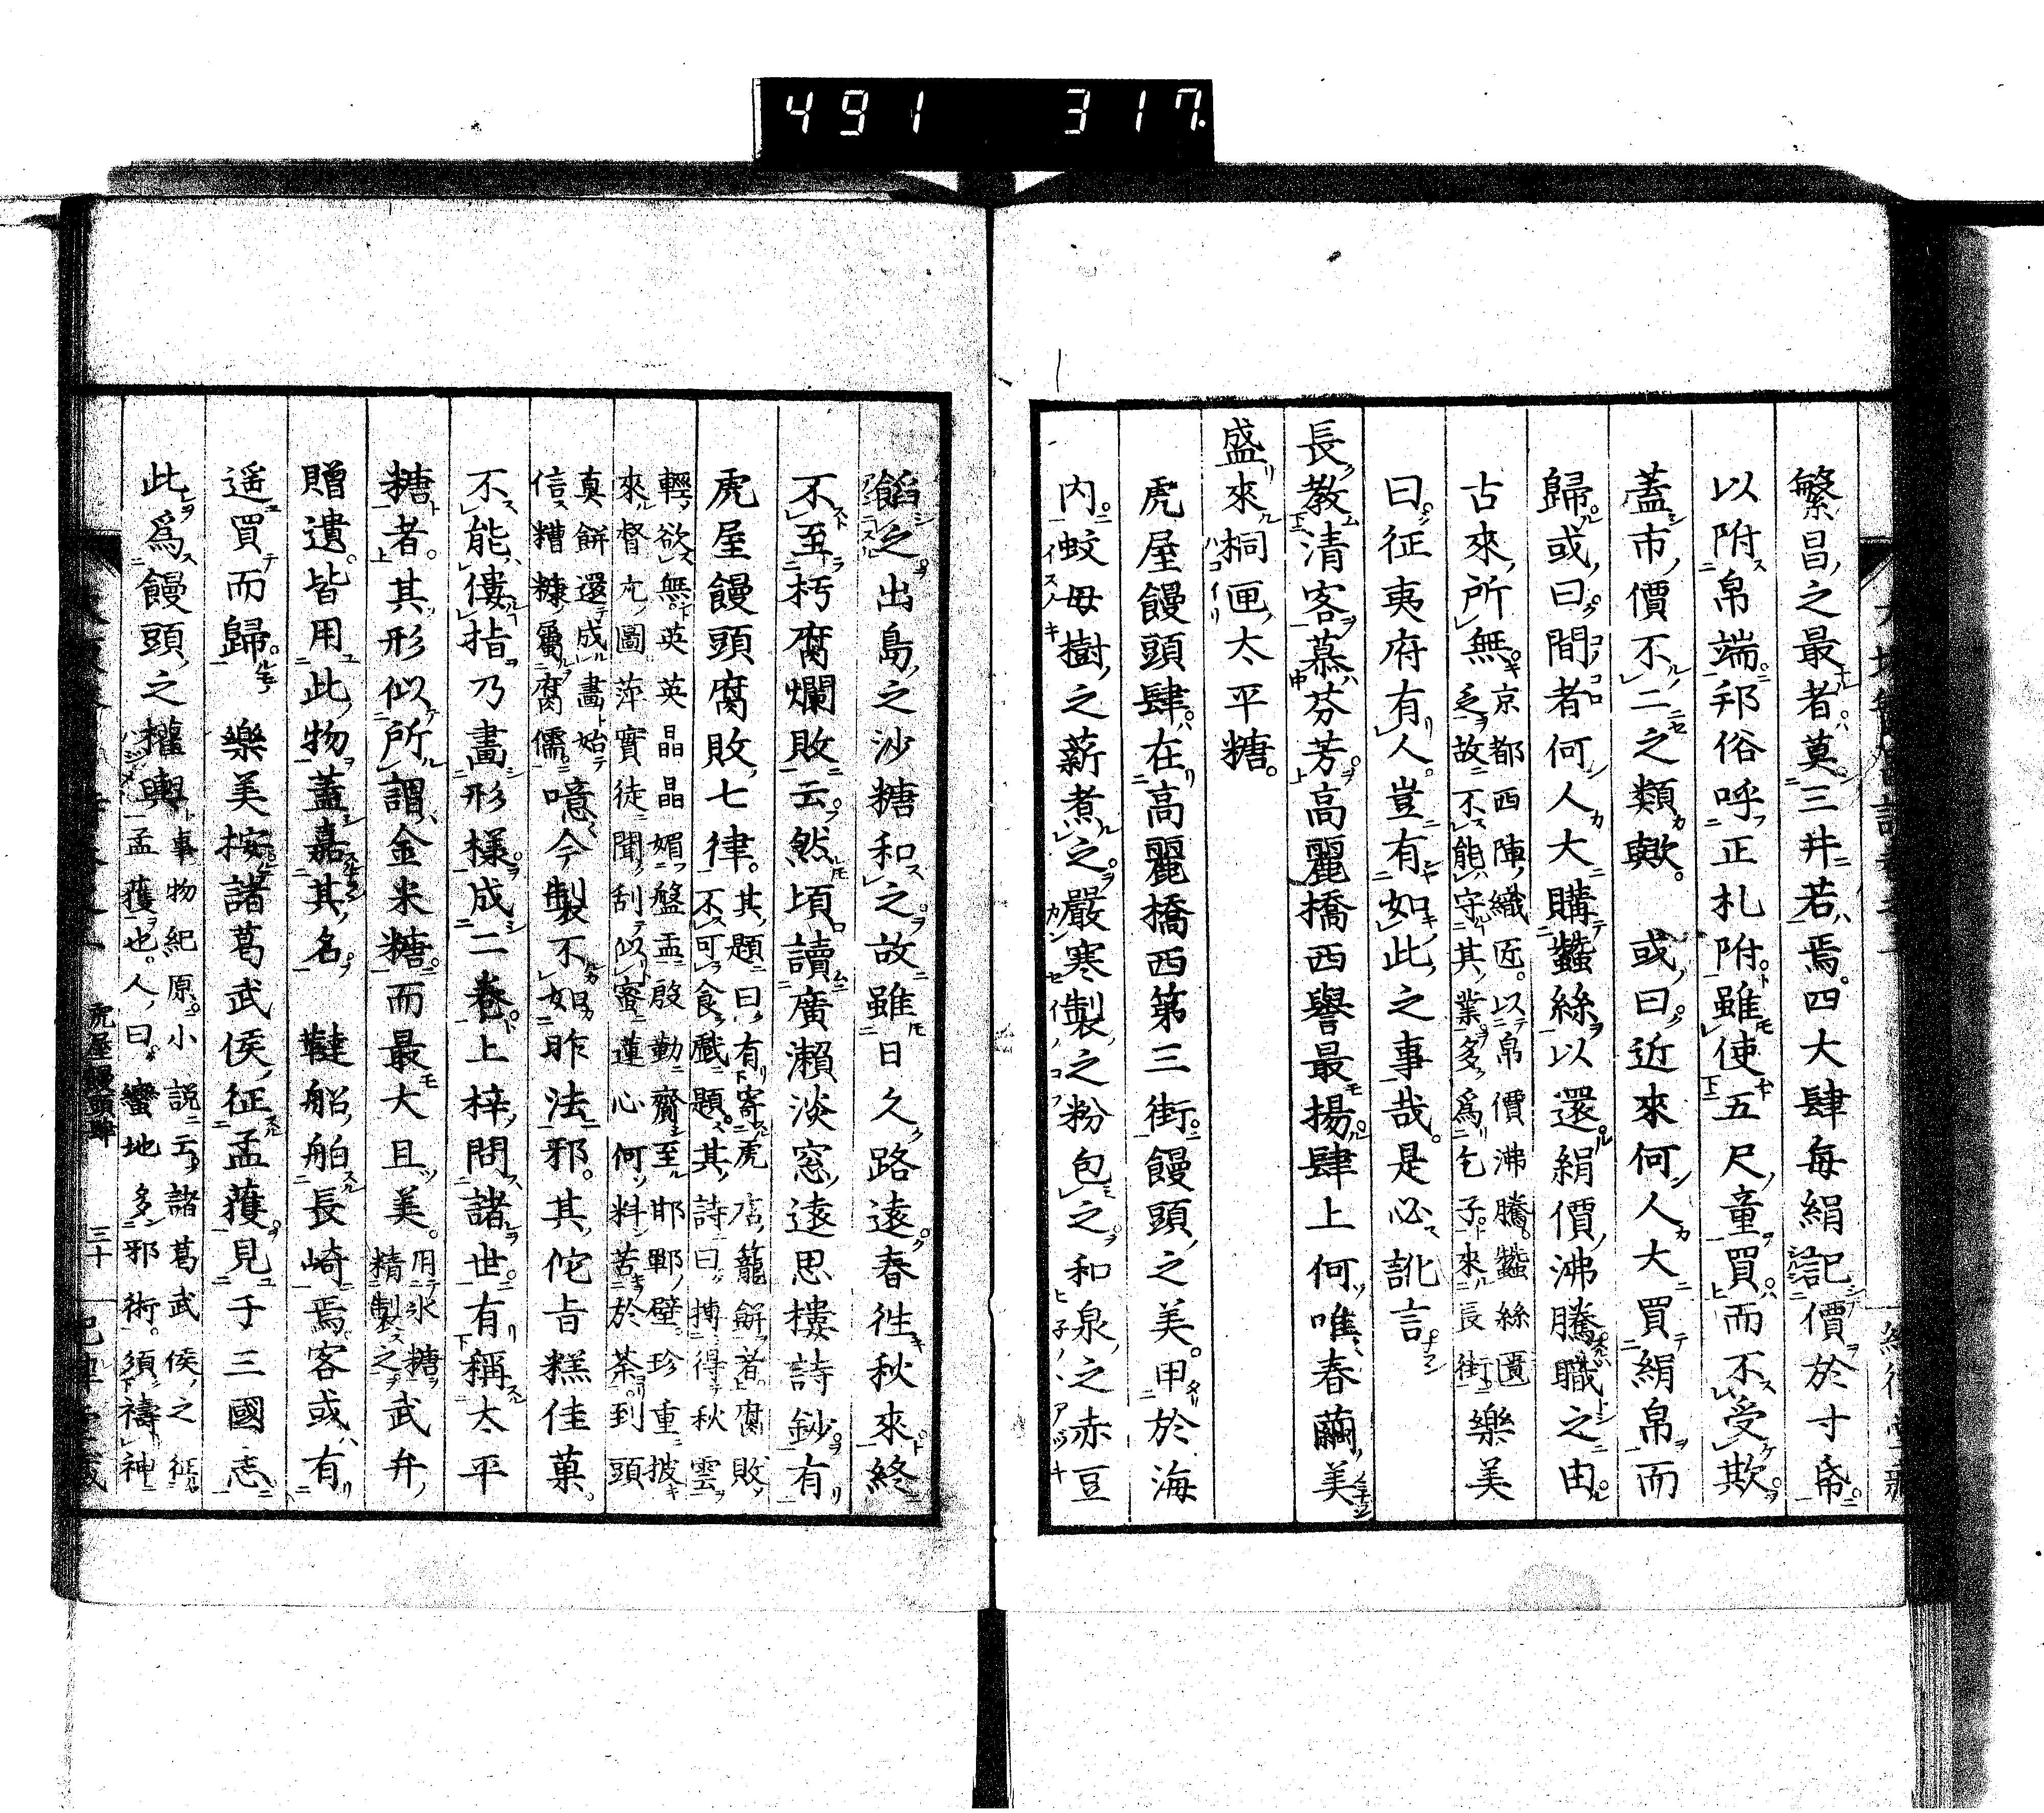 491 317
繁昌之最者莫三井若焉四大肆每絹記價於寸帋
以附帛端邦俗呼正札附雖使五尺童買而不受欺
蓋市價不二之類歟　或曰近來何人大買絹帛而
歸或曰間者何人大購蠶絲以還絹價沸騰職之由
古來所無京都西陣織匠以帛價沸騰蠶絲匱
乏故不能守其業多為乞子來長街樂美
曰征夷府有人豈有如此之事哉是必訛言
長教清客慕芬芳高麗橋西譽最揚肆上何唯春繭美
盛來桐匣太平糖
虎屋饅頭肆在高麗橋西第三街饅頭之美甲於海
内蚊母樹之薪煮之嚴寒製之粉包之和泉之赤豆
餡之出島之沙糖和之故雖日久路遠春徃秋來終
不至朽腐爛敗云然頃讀廣瀨淡窓遠思樓詩鈔有
虎屋饅頭腐敗七律其題曰有寄虎店籠餅者腐敗
不可食戲題其詩曰摶得秋雲
輕欲無英英晶晶媚盤盂殷勤齎至邯鄲壁珍重披
來督亢圖萍實徒聞刮似蜜蓮心何料苦於荼到頭
真餅還成畫始
信糟糠屬腐儒噫今製不如昨法邪其佗旨糕佳菓
不能僂指乃畫形樣成二卷上梓問諸世有稱太平
糖者其形似所謂金米糖而最大且美用氷糖
精製之武弁
贈遺皆用此物蓋嘉其名　韃船舶長崎焉客或有
遥買而歸　樂美按諸葛武侯征孟獲見于三國志
此為饅頭之權輿事物紀原小說云諸葛武侯之征
孟獲也人曰蠻地多邪術須禱神
虎屋饅頭肆
三十